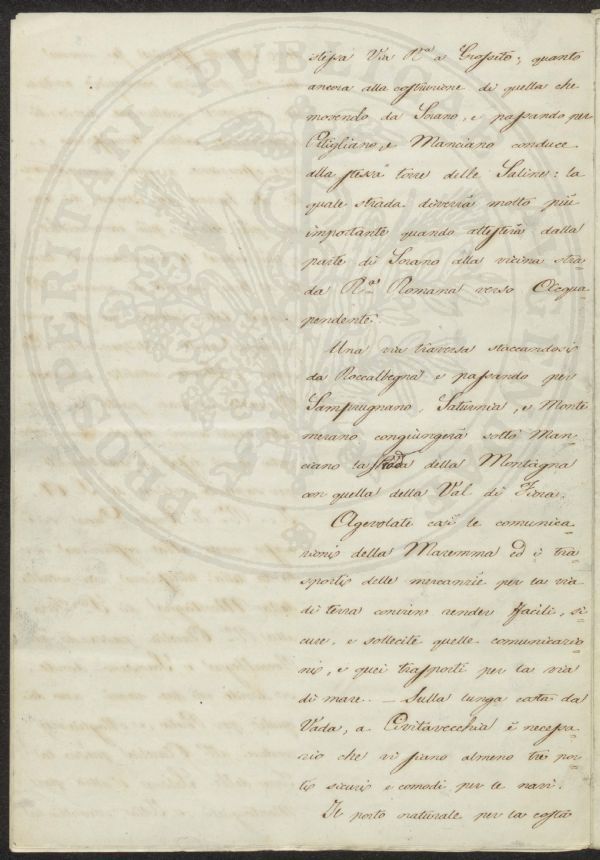 stessa Via R.ª a Grosseto; quanto
ancora alla costruzione di quella che
movendo da Sorano, e passando per
Pitigliano, e Manciano conduce
alla stessa torre delle Saline: la
quale strada diverrà molto più
importante quando attesterà dalla
parte di Sorano alla vicina stra=
da R.ª Romana verso Acqua=
pendente.
Una via traversa staccandosi
da Roccalbegna e passando per
Samprugnano, Saturnia, e Monte
merano congiungerà sotto Man=
ciano la strada della Montagna
con quella della Val di Fiora.
Agevolate così le comunica=
zioni della Maremma ed i tra=
sporti delle mercanzie per la via
di terra convien render facili, si=
cure, e sollecite quelle comunicazio=
ni, e quei trasporti per la via
di mare. — Sulla lunga costa da
Vada, a Civitavecchia è necessa=
rio che vi siano almeno tre por=
ti sicuri e comodi per le navi.
Il porto naturale per la costa
PROSPERITATI PVBLICAE